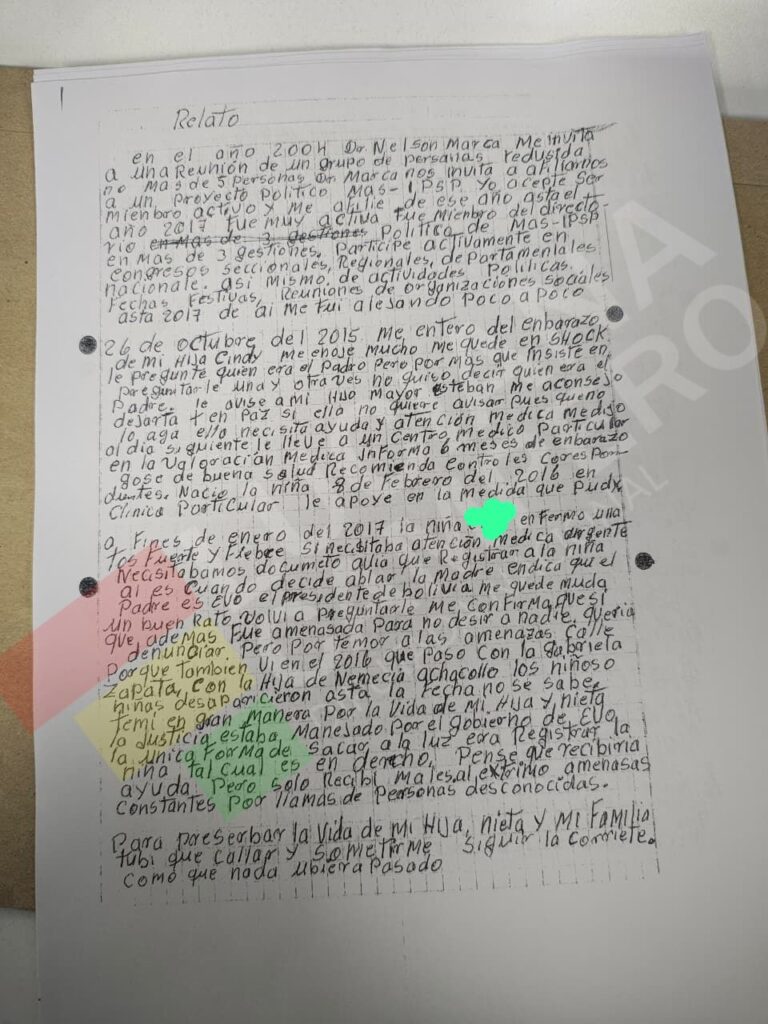 1
Relato
en el año 2004 Dr Nelson Marca Me invita
a una Reunión de un grupo de personas redusida
no mas de 5 personas Dr. Marca nos invita a afiliarnos
a un proyecto Político Mas-IPSP. Yo acepte ser
miembro activo y me afilie de ese año asta el
año 2017 fue muy activa fue Miembro del directo-
rio en Mas de 3 gestiones Política de Mas-IPSP
en Mas de 3 gestiones. Participe activamente en
congresos seccionales, Regionales, departamentales
nacionale. asi mismo de actividades Políticas.
Fechas Festivas, Reuniones de organizaciones sociales
asta 2017 de ai me fui alejando poco a poco
26 de octubre del 2015. me entero del enbarazo
de mi Hija Cindy me enoje mucho me quede en SHOCK.
le pregunte quien era el Padro pero por mas que insiste en
preguntarle una y otra ves no quiso decir quien era el
Padre. le avise a mi Hijo mayor esteban me aconsejo
dejarta en Paz si ella no quiere avisar pues que no
lo aga ella necisita ayuda y atención medica medijo
al dia siguiente le lleve a un centro medico Particular
en la Valoración Medica informa 6 meses de enbarazo
gose de buena salud Recomienda controles correspon
dientes. Nacio la niña 8 de Febrero del 2016 en
Clinica Particular le apoye en la medida que pude
a Fines de enero del 2017 la niña en Fermo una
tos Fuerte y Fiebre si necisitaba atención medica urgente
Necisitabamos documeto auia que Registrar a la niña
ai es cuando decide ablar la madre endica que el
Padre es EVO el presidente de bolivia me quede muda
un buen Rato. volvi a preguntarle me confirma que si
que ademas fue amenasada para no desir a nadie. queria
denunciar. Pero por temor a las amenazas calle
Porque tambien vi en el 2016 que paso con la Gabriela
Zapata, con la Hija de Nemecia achacollo los niños o
niñas desaparicieron asta la Fecha no se sabe
temi en gran manera por la vida de mi Hija y nieta
la Justicia estaba Manejado por el gobierno de EVO
la unica Forma de sacar a la luz era Registrar la
niña tal cual es en dercho, Pense que recibiria
ayuda Pero solo Recibi males, al extrimo amenasas
constantes Por llamas de Personas desconocidas.
Para preserbar la vida de mi Hija, nieta y mi Familia
tubi que callar y sometirme siguir la corriete.
como que nada ubiera Pasado